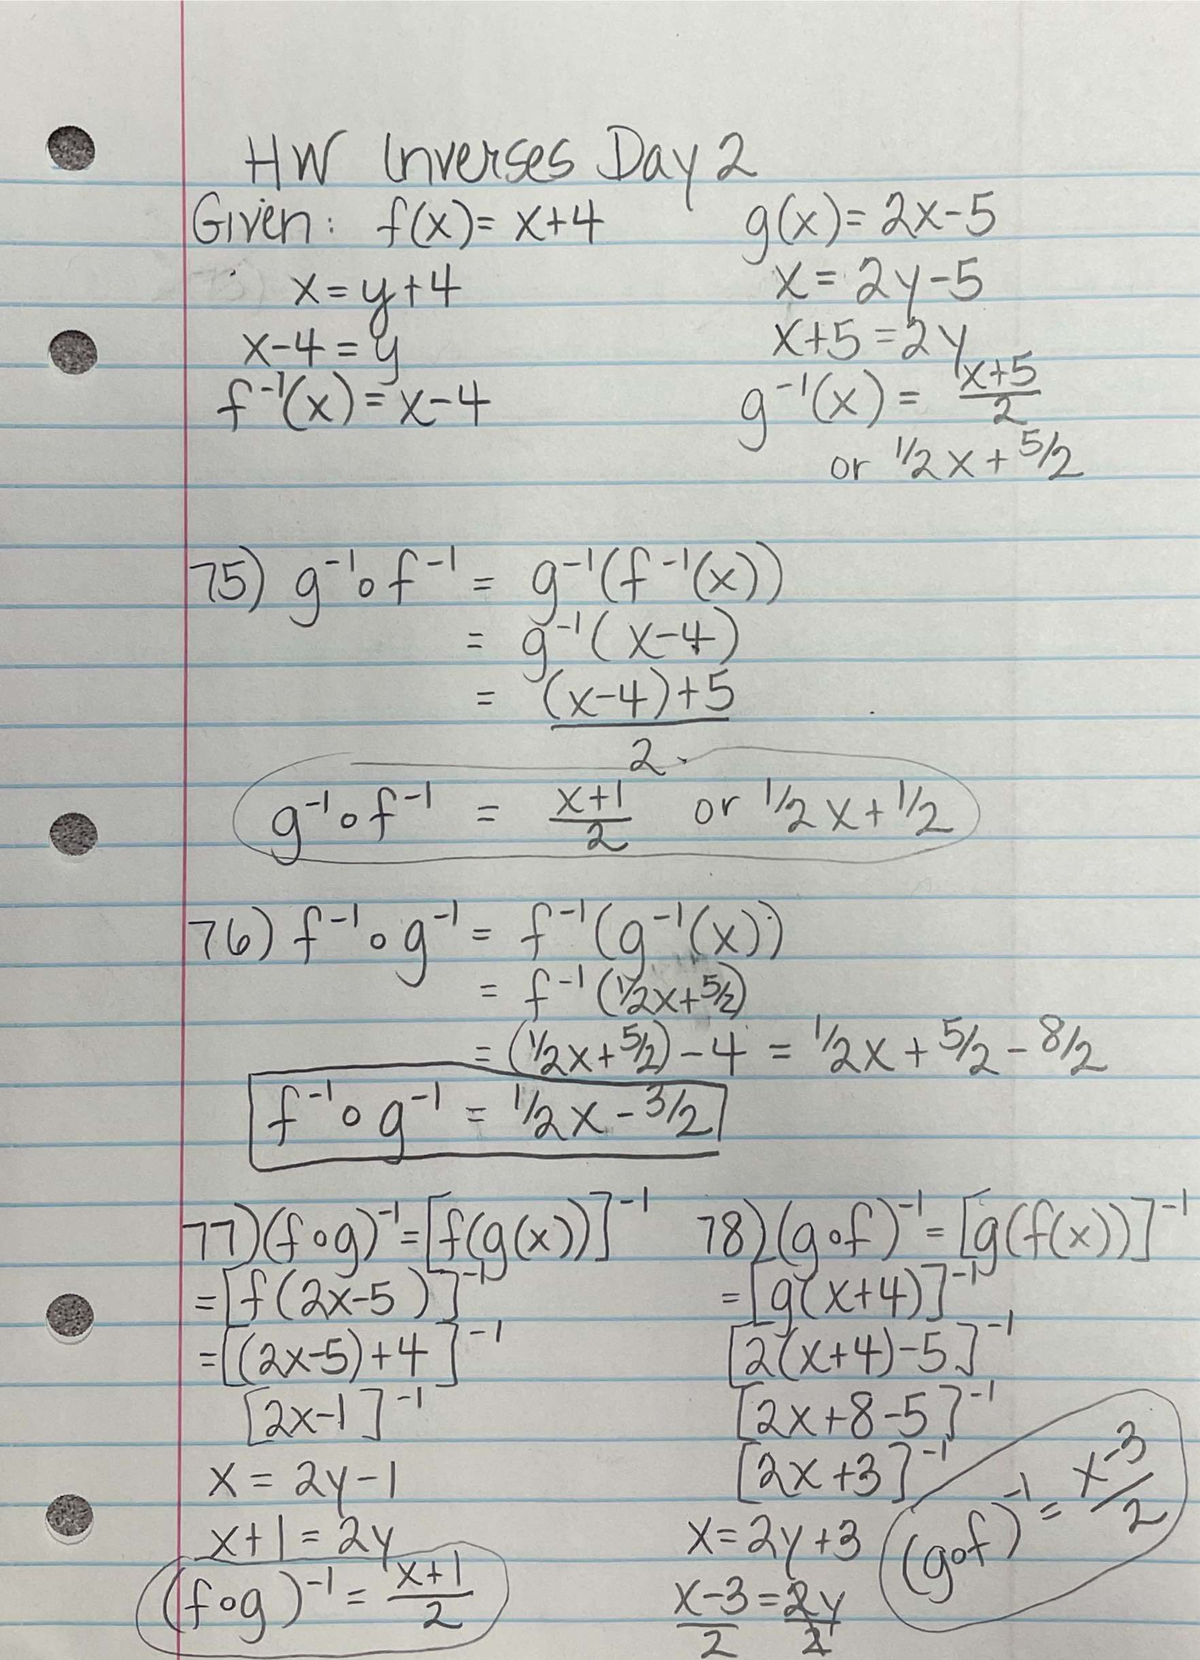 HW Inverses Day 2
Given: f(x) = x+4
x = y+4
x-4 = y
f⁻¹(x) = x-4
g(x) = 2x-5
x = 2y-5
x+5 = 2y
g⁻¹(x) = (x+5)/2
or 1/2 x + 5/2
75) g⁻¹∘f⁻¹ = g⁻¹(f⁻¹(x))
= g⁻¹(x-4)
= ((x-4)+5)/2
g⁻¹∘f⁻¹ = (x+1)/2 or 1/2 x + 1/2
76) f⁻¹∘g⁻¹ = f⁻¹(g⁻¹(x))
= f⁻¹(1/2x + 5/2)
= (1/2x + 5/2) - 4 = 1/2x + 5/2 - 8/2
f⁻¹∘g⁻¹ = 1/2x - 3/2
77) (f∘g)⁻¹ = [f(g(x))]⁻¹
= [f(2x-5)]⁻¹
= [(2x-5)+4]⁻¹
[2x-1]⁻¹
x = 2y-1
x+1 = 2y
(f∘g)⁻¹ = (x+1)/2
78) (g∘f)⁻¹ = [g(f(x))]⁻¹
= [g(x+4)]⁻¹
[2(x+4)-5]⁻¹
[2x+8-5]⁻¹
[2x+3]⁻¹
x = 2y+3
(x-3)/2 = 2y/2
(g∘f)⁻¹ = (x-3)/2